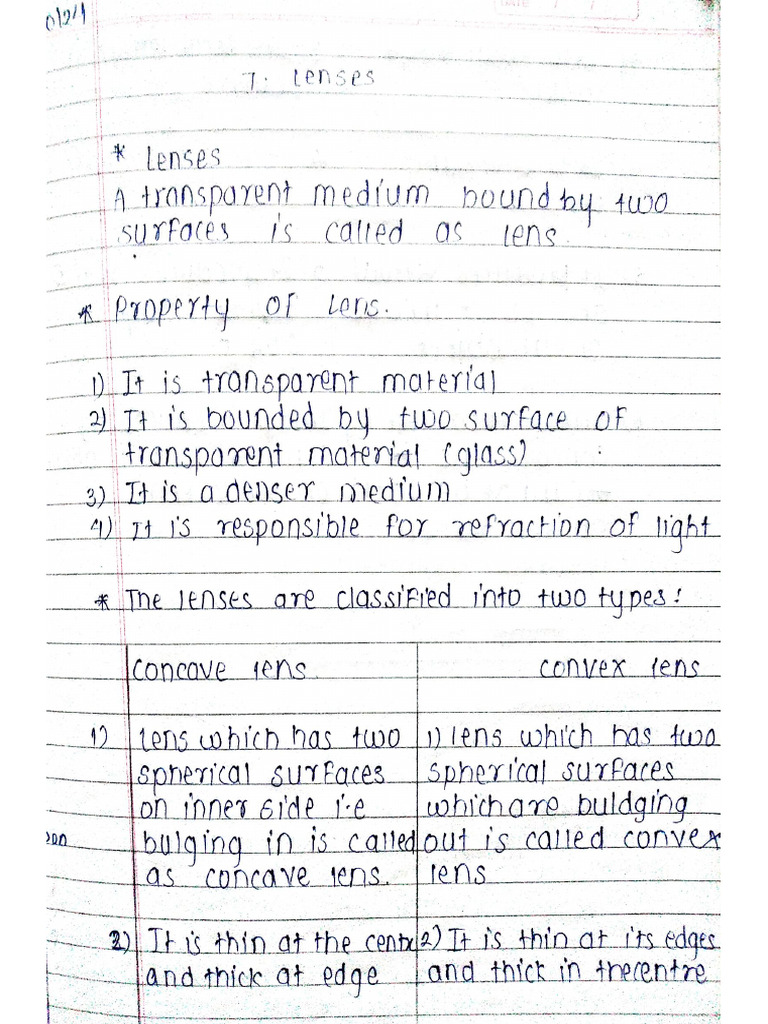 0/24
DATE
7. Lenses
* Lenses
A transparent medium bound by two
surfaces is called as lens.
* Property of lens.
1) It is transparent material
2) It is bounded by two surface of
transparent material (glass)
3) It is a denser medium
4) It is responsible for refraction of light
* The lenses are classified into two types:
Concave lens.
1) lens which has two
spherical surfaces
on inner side i.e
bulging in is called
as concave lens.
2) It is thin at the centre
and thick at edge
convex lens
1) lens which has two
spherical surfaces
which are buldging
out is called convex
lens
2) It is thin at its edges
and thick in the centre